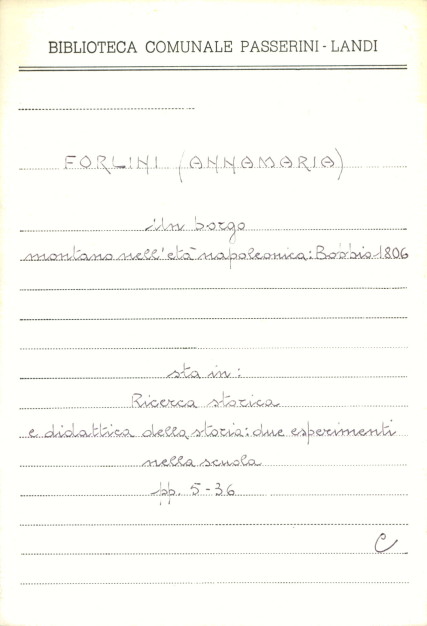 BIBLIOTECA COMUNALE PASSERINI-LANDI
FORLINI (ANNAMARIA)
Un borgo
montano nell'età napoleonica: Bobbio 1806
sta in:
Ricerca storica
e didattica della storia: due esperimenti
nella scuola
pp. 5-36
C